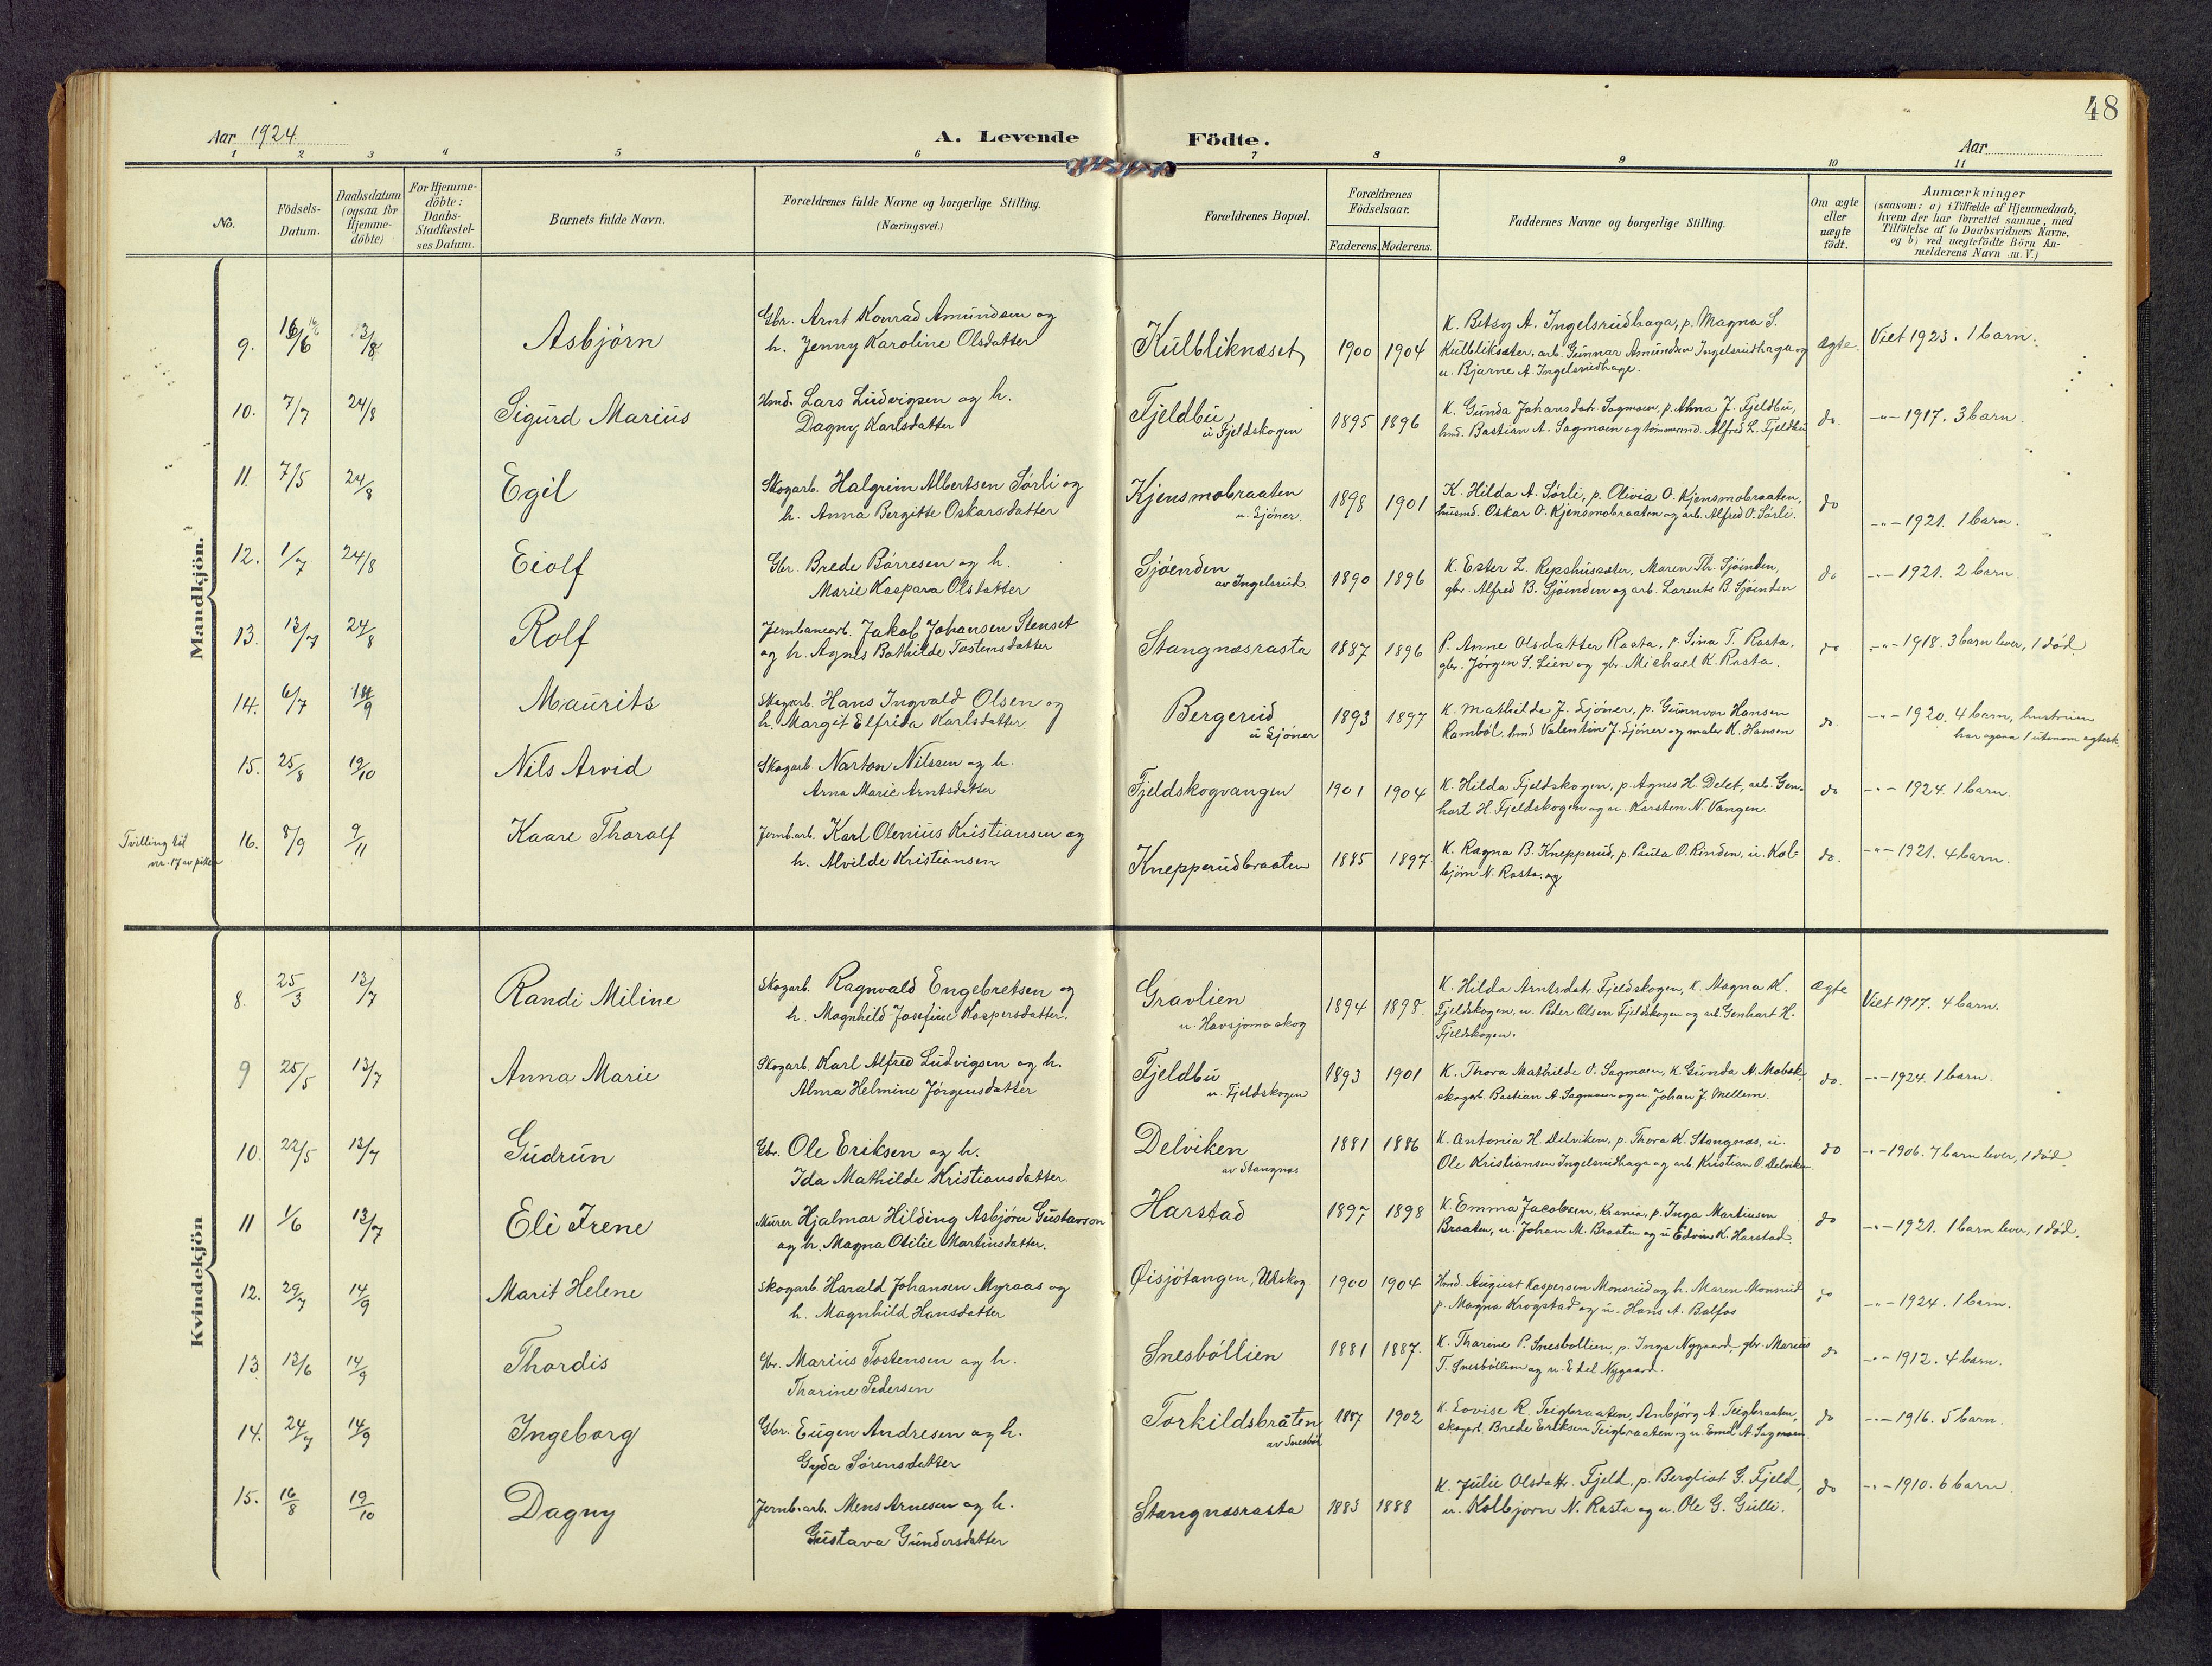 48
Aar 1924.
A. Levende Födte.
Aar
1 2 3 4 5 6 7 8 9 10 11
No.
Födsels-Datum.
Daabsdatum (ogsaa for Hjemme-döbte)
For Hjemme-döbte: Daabs-Stadfæstel-ses Datum.
Barnets fulde Navn.
Forældrenes fulde Navne og borgerlige Stilling.
(Næringsvei.)
Forældrenes Bopæl.
Forældrenes Födselsaar.
Faderens. Moderens.
Faddernes Navne og borgerlige Stilling.
Om ægte eller uægte födt.
Anmærkninger
(saasom: a) i Tilfælde af Hjemmedaab,
hvem der har forrettet samme, med
Tilföielse af to Daabsvidners Navne.
og b) ved uægtefödte Börn An-
melderens Navn m. V.)
Mandkjön.
9. 16/6 3/8 Asbjörn
Gbr. Arnt Konrad Amundsen og
h. Jenny Karoline Olsdatter
Kulbliknæset 1900 1904
K. Betsy A. Ingelsrudhaga, p. Magna S.
Kulbliksæter, arb. Gunnar Amundsen Ingelsrudhaga og
u. Bjarne A. Ingelsrudhage.
ægte. Viet 1923. 1 barn.
10. 7/7 24/8 Sigurd Marius
Hmd. Lars Ludvigsen og h.
Dagny Karlsdatter
Fjeldbu
u Fjeldskogen 1895 1896
K. Gunda Johansdatr. Sagmoen, p. Alma J. Fjeldbu,
hmd. Bastian A. Sagmoen og tömmermd. Alfred L. Fjeldbu
do. -"- 1917. 3 barn
11. 7/5 24/8 Egil
Skogarb. Halgrim Albertsen Sörli og
h. Anna Bergitte Oskarsdatter
Kjensmobraaten
u. Sjöner. 1898 1901
K. Hilda A. Sörli, p. Olivia O. Kjensmobraaten,
husmd. Oskar O. Kjensmobraaten og arb. Alfred O. Sörli.
do -"- 1921. 1 barn.
12. 1/7 24/8 Eiolf
Gbr. Brede Börresen og h.
Marie Kaspara Olsdatter
Sjöenden
av Ingelsrud. 1890 1896
K. Ester L. Repshussæter, Maren Th. Sjöenden,
gbr. Alfred B. Sjöenden og arb. Lorents B. Sjöenden
do -"- 1921. 2 barn.
13. 13/7 24/8 Rolf
Jernbanearb. Jakob Johansen Stenset
og h. Agnes Bothilde Tostensdatter
Stangnæsrasta 1887 1896
P. Anne Olsdatter Rasta, p. Sina T. Rasta,
gbr. Jörgen S. Lien og gbr. Michael K. Rasta.
do -"- 1918. 3 barn lever, 1 död.
14. 6/7 14/9 Maurits
Skogarb. Hans Ingvald Olsen og
h. Margit Elfrida Karlsdatter.
Bergerud
u Sjöner 1893 1897
K. Mathilde J. Sjöner, p. Gunnvor Hansen
Ramböl, hmd Valentin J. Sjöner og maler K. Hansen
do. -"- 1920. 4 barn, hustruen
har ogsaa 1 utenom egtesk.
15. 25/8 19/10 Nils Arvid
Skogarb. Narton Nilssen og h.
Arna Marie Arntsdatter
Fjeldskogvangen 1901 1904
K. Hilda Fjeldskogen, p. Agnes H. Delet, arb. Gen-
hart H. Fjeldskogen og u. Karsten N. Vangen
do -"- 1924. 1 barn.
Tvilling til
nr. 17 av piker
16. 8/9 9/11 Kaare Thoralf
Jernb.arb. Karl Olenius Kristiansen og
h. Alvilde Kristiansen
Knepperudbraaten 1885 1897
K. Ragna B. Knepperud, p. Paula O. Rinden, u. Kol-
björn N. Rasta, og
do. -"- 1921. 4 barn.
Kvindekjön
8. 25/3 13/7 Randi Miline
Skogarb. Ragnvald Engebretsen og
h. Magnhild Josefine Kaspersdatter.
Gravlien
u. Havsjomoskog 1894 1898.
K. Hilda Arntsdatr. Fjeldskogen, K. Magna K.
Fjeldskogen, u. Peder Olsen Fjeldskogen og arb Genhart H.
Fjeldskogen.
ægte Viet 1917. 4 barn.
9 25/5 13/7 Anna Marie
Skogarb. Karl Alfred Ludvigsen og h.
Alma Helmine Jörgensdatter
Fjeldbu
u. Fjeldskogen 1893 1901
K. Thora Mathilde O. Sagmoen, K. Gunda N. Mobæk,
skogarb. Bastian A Sagmoen og u. Johan J. Mellem.
do. -"- 1924. 1 barn.
10. 22/5 13/7 Gudrun
Gbr. Ole Eriksen og h.
Ida Mathilde Kristiansdatter.
Delviken
av Stangnæs 1881 1886
K. Antonia H. Delviken, p. Thora K. Stangnæs, u.
Ole Kristiansen Ingelsrudhaga og arb. Kristian O. Delviken
do -"- 1906. 7 barn lever, 1 död.
11 1/6 13/7 Eli Irene
Murer Hjalmar Hilding Asbjörn Gustavson
og h. Magna Otilie Martinsdatter.
Harstad 1897 1898
K. Emma Jacobsen, Krania, p. Inga Martinsen
Braaten, u. Johan M. Braaten og u Edvin K. Harstad.
do -"- 1921. 1 barn lever, 1 död.
12. 29/7 14/9 Marit Helene
Skogarb. Harald Johansen Myraas og
h. Magnhild Hansdatter
Öisjötangen, Urskog. 1900 1904
Hmd. August Kaspersen Monsrud og h. Maren Monsrud
p. Magna Krogstad og u. Hans A. Balfos
do -"- 1924. 1 barn.
13 13/6 14/9 Thordis
Gbr. Marius Tostensen og h.
Tharine Pedersen
Snesböllien 1881 1887.
K. Tharine P. Snesbollien, p. Inga Nygaard, gbr. Marius
T. Snesböllien og u. Edel Nygaard.
do -"- 1912. 4 barn.
14. 24/7 14/9 Ingeborg
Gbr. Eugen Andresen og h.
Gyda Sörensdatter
Torkildsbråten
av Snesböl 1887 1902
K Lovise R. Teigbraaten, Anbjörg A. Teigbraaten,
skogarb. Brede Eriksen Teigbraaten og u. Emil A Sagmoen
do -"- 1916. 5 barn.
15. 16/8 19/10 Dagny
Jernb.arb. Mens Arnesen og h.
Gustava Gundersdatter
Stangnæsrasta 1883 1888
K. Julie Olsdatr. Fjeld, p. Bergliot G. Fjeld,
u. Kolbjorn N. Rasta og u. Ole G. Gulli.
do -"- 1910. 6 barn.